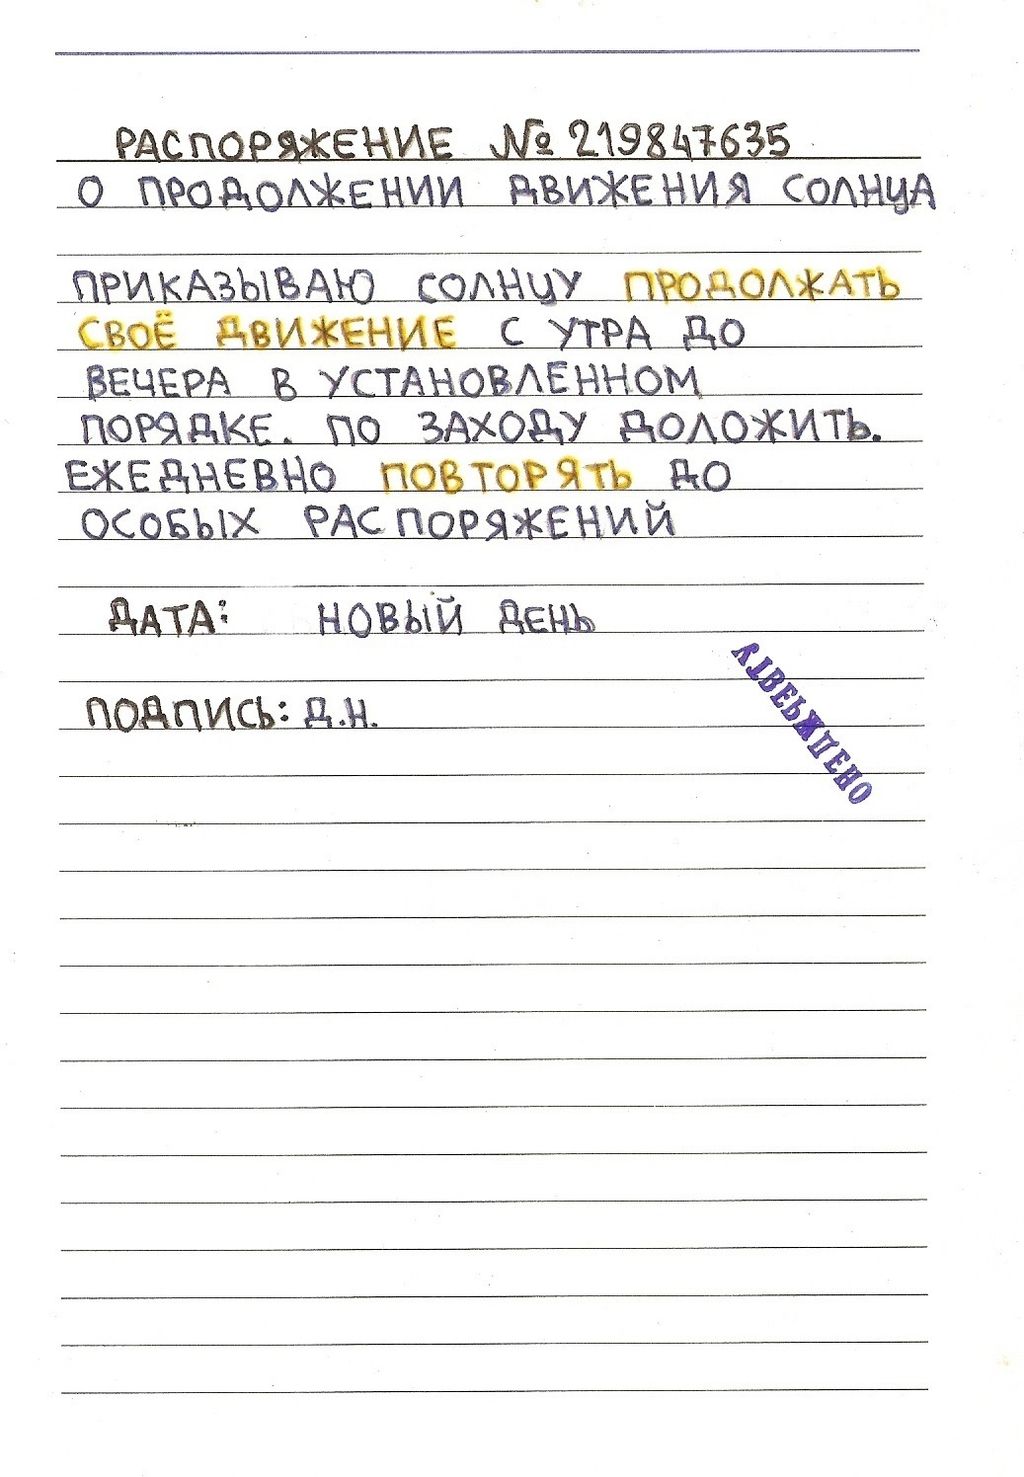 РАСПОРЯЖЕНИЕ № 219847635
О ПРОДОЛЖЕНИИ ДВИЖЕНИЯ СОЛНЦА
ПРИКАЗЫВАЮ СОЛНЦУ ПРОДОЛЖАТЬ
СВОЁ ДВИЖЕНИЕ С УТРА ДО
ВЕЧЕРА В УСТАНОВЛЕННОМ
ПОРЯДКЕ. ПО ЗАХОДУ ДОЛОЖИТЬ.
ЕЖЕДНЕВНО ПОВТОРЯТЬ ДО
ОСОБЫХ РАСПОРЯЖЕНИЙ
ДАТА: НОВЫЙ ДЕНЬ
ПОДПИСЬ: Д.Н.
УТВЕРЖДЕНО